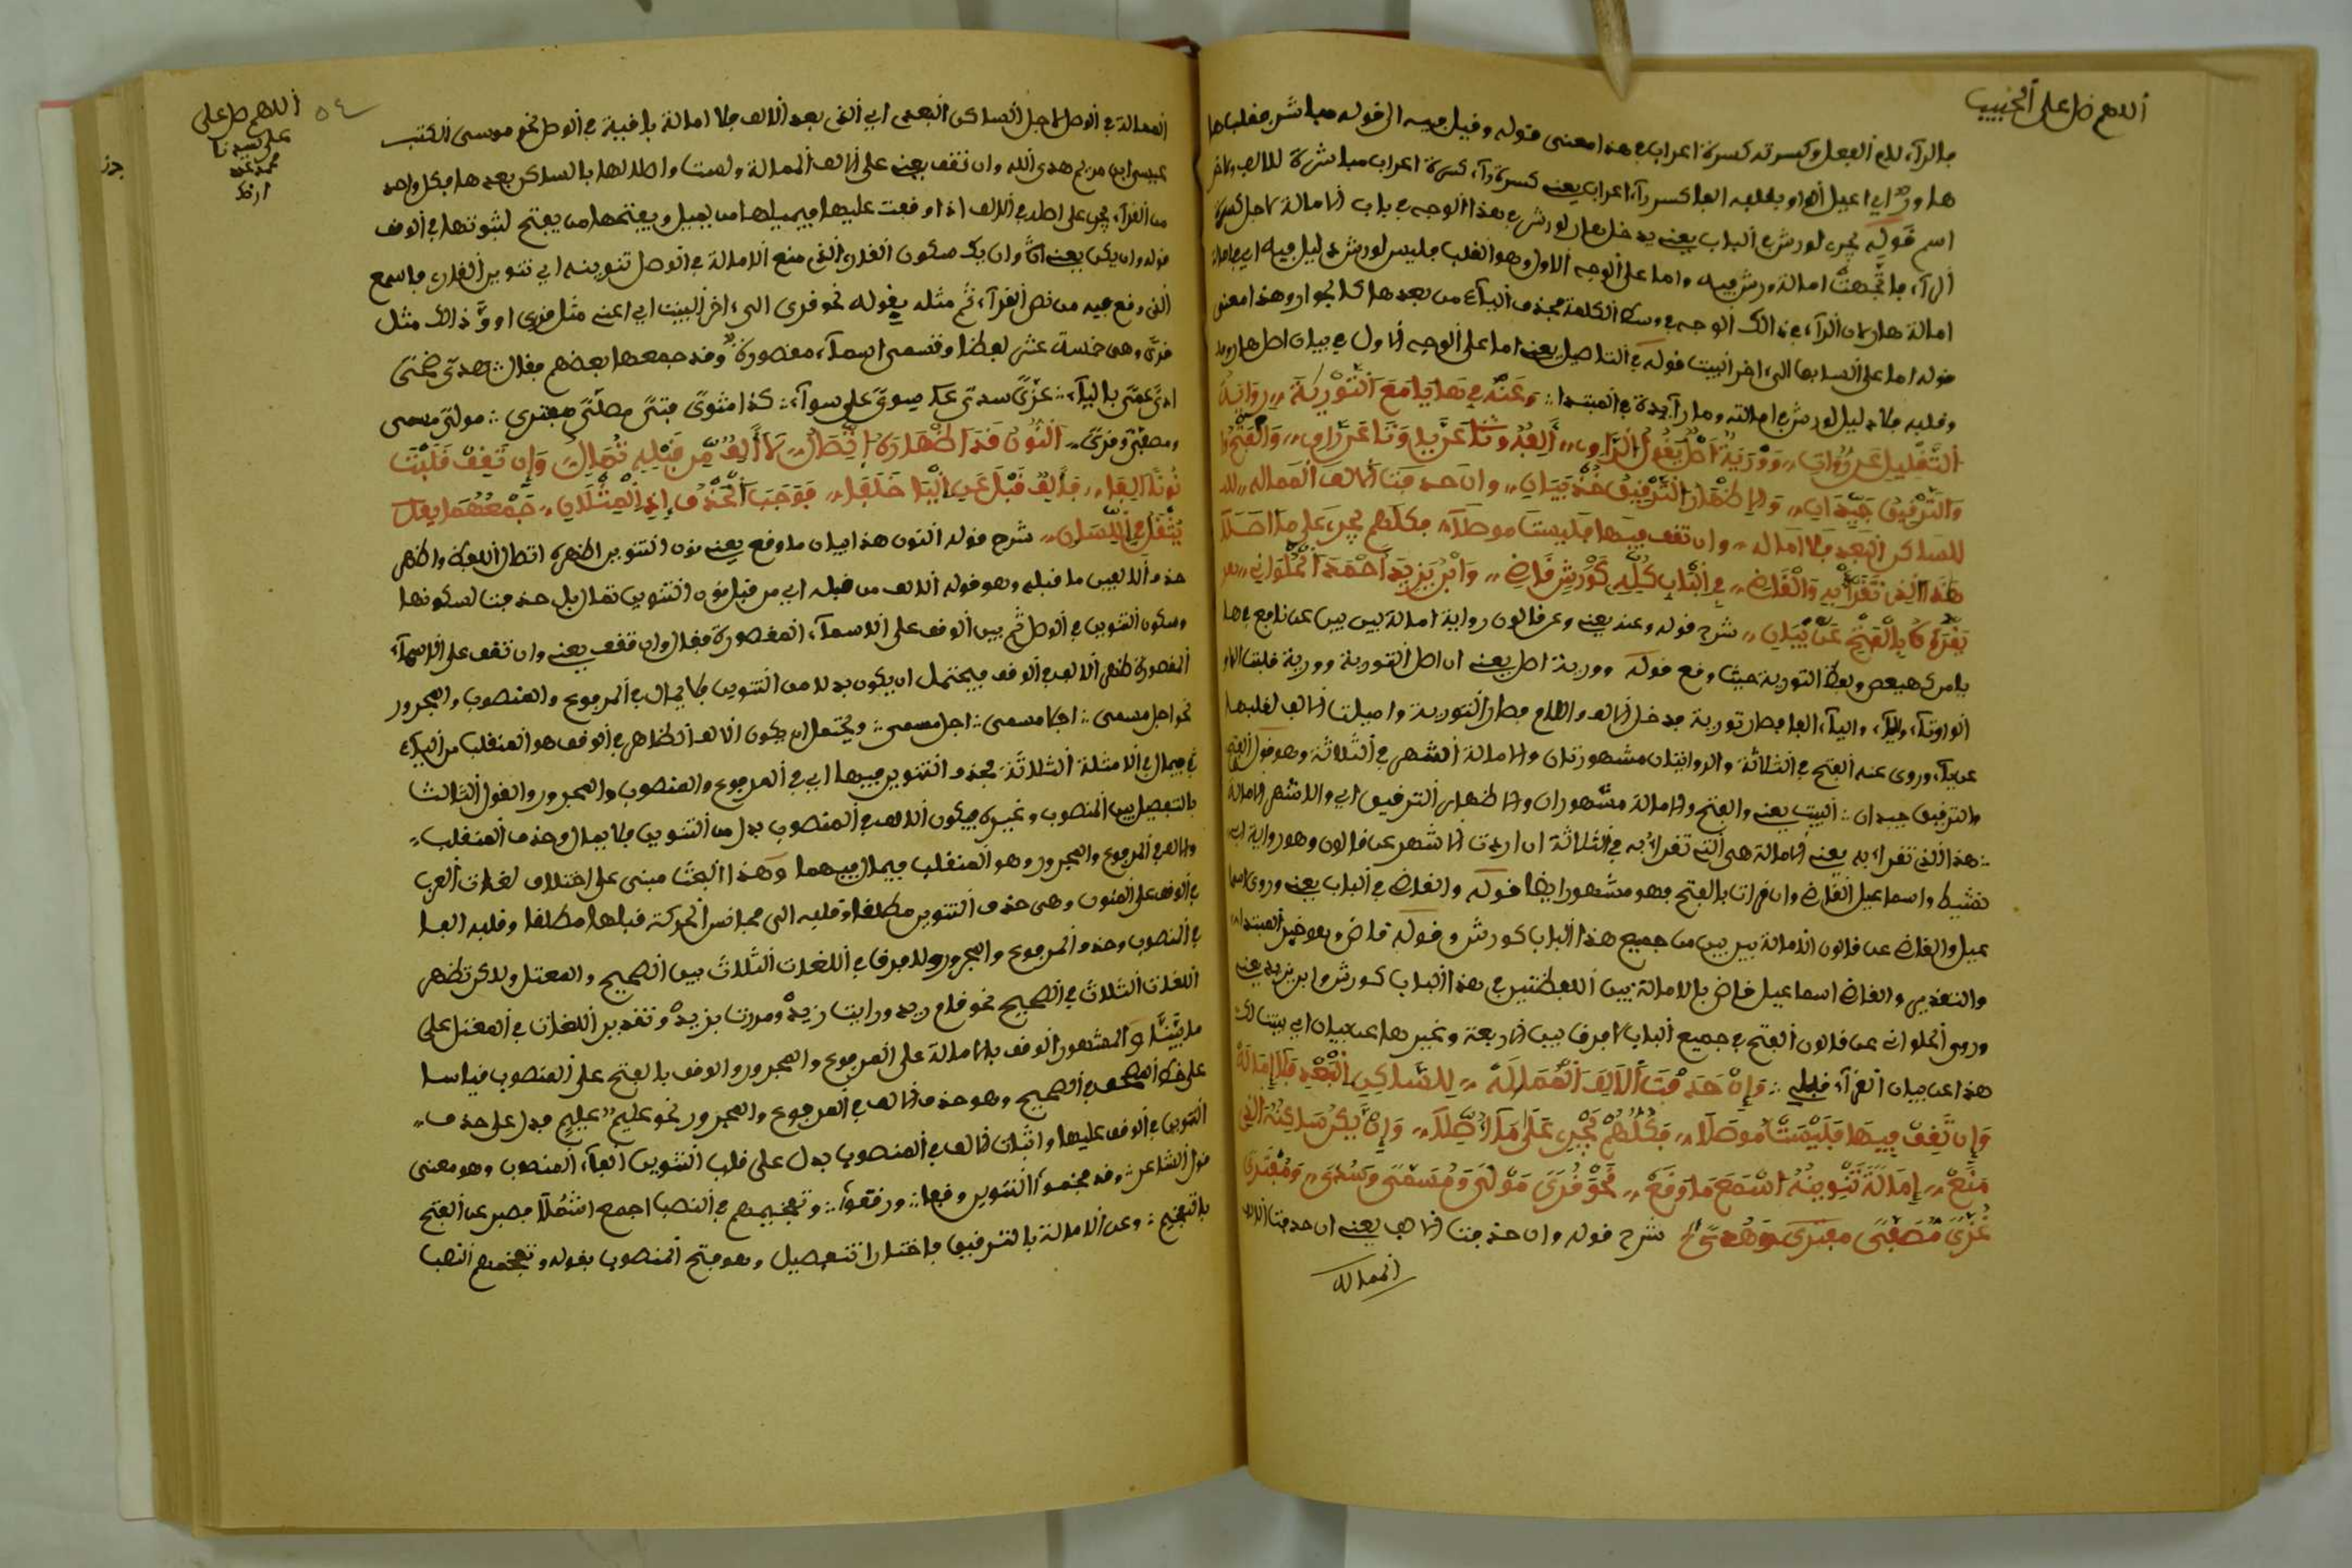 اللهم صل على الحبيب
بالراء لام الفعل وكسرته كسرة اعراب هذا معنى قوله وقيل فيه الى قوله مباشر فقلبها
اسم قوله يجر لورش في الباب يعنى يدخل هار لورش في هذا الوجه في باب الامالة لاجل كسرة
الراء فاتجهت امالة ورش فيه واما على الوجه الاول وهو القلب فليس لورش دليل فيه
امالة هار لان الراء في ذالك الوجه في وسط الكلمة بحذف الياء من بعدها كالجوار وهذا معنى
قوله اما على السابق الى اخر البيت قوله في التاصيل يعنى اما على الوجه الاول في بيان اصل هار
وقلبه فلا دليل لورش في امالته وما زايدة في المبتدا وَعَنْهُ فِي هَا يَا مَعَ التَّوْرِيَةِ رِوَايَةُ
التَّقْلِيلِ عَن رُوَاتِ وَوْرَيَةٌ أَصْلٌ
وَالتَّرْقِيقُ جَيِّدَانِ وَالإِظْهَارُ التَّرْقِيقُ خُذْ بَيَانِ وان حذفت الالف الممالة
للساكن البعد فلا امالة وان تقف فيها فليست موصلا فكلهم يجر على ما اصلا
هَذَا الَّذِي نَقْرَأُ بِهِ وَالْقَاضِ فِي الْبَابِ كُلِّهِ كَوَرْشٍ قَاضِ وَابْنُ يَزِيدَ أَحْمَدَ الْحُلْوَانِي
يَقْرَؤُهَا بِالْفَتْحِ عَن بَيَانِ شرح قوله وعنه يعنى وعن قالون رواية امالة بين بين عن نافع في ها
يا من كهيعص ولفظ التورية حيث وقع قوله وورية اصل يعنى ان اصل التورية وورية قلبت الواو
الواو تاء والياء الفا فصار تورية فدخل الالف واللام فصار التورية واميلت الالف لقلبها
عن ياء وروى عنه الفتح في الثلاثة والروايتان مشهورتان والامالة اشهر في الثلاثة وهو قوله الفتح
والترقيق جيدان البيت يعنى والفتح والامالة مشهوران والاظهار الترقيق اي والاشهر الامالة
هذا الذي نقرا به يعنى الامالة هي التي تقرا به في الثلاثة ان اردت الاشهر عن قالون وهو رواية ابي
نشيط واسماعيل القاض وان قرات بالفتح فهو مشهور ايضا قوله والقاض في الباب يعنى وروى اسما
عيل والقاض عن قالون الامالة بين بين من جميع هذا الباب كورش وقوله قاض وهو خبر المبتدا
والتقدير والقاض اسماعيل قاض بالامالة بين اللفظتين في هذا الباب كورش وابن يزيد يعنى
وروى الحلوانى عن قالون الفتح في جميع الباب لا فرق بين الاربعة وغيرها عن بيان اي بينت لك
هذا عن بيان القراء قبلى وَإِنْ حَذَفْتَ أَلِفَ الْمُمَالَة لِلسَّاكِنِ الْبَعْدِ فَلَا إِمَالَة
وَإِن تَقِفْ فِيهَا فَلَيْسَتْ مُوصَلَا فَكُلُّهُمْ يَجْرِ عَلَى مَا أُصِّلَا وَإِنْ يَكُن سَاكِنُهُ الَّذِي
مَنَعْ إِمَالَةً تَنْوِينُهُ اسْمَعْ مَا وَقَعْ نَحْوُ قُرًى مَوْلًى وَمُسَمًّى وَسُدًى وَمُفْتَرًى
غُزًّى مُصَفًّى مفترى وهدى شرح قوله وان حذفت الالف يعنى ان حذفت الالف
الممالة
اللهم صل على
على سيدنا
محمد عدد
٥٤
الممالة في الوصل لاجل الساكن البعدى اي الذي بعد الالف فلا امالة باقية في الوصل نحو موسى الكتب
عيسى ابن مريم هدى الله وان تقف يعنى على الالف الممالة وليست واصلا لها بالساكن بعدها فكل واحد
من القراء يجر على اصله في الالف اذا وقعت عليها فيميلها من يميل ويفتحها من يفتح لثبوتها في الوقف
قوله وان يكن يعنى
الذي وقع فيه من نص القراء ثم مثله بقوله نحو قرى الى اخر البيت اي اعنى مثل قرى او ذالك مثل
قرى وهى خمسة عشر لفظا وتسمى اسماء مقصورة وقد جمعها بعضهم فقال هدى ضحى
اذى عمى بالياء غزى سدى
ومصفى وقرى النُّونُ قَدْ أَظْهَرَهُ اتِّصَالُ لَا أَلِفٌ مِّن قَبْلِهِ تُمَالُ وَإِن تَقِفْ قَلَبْتَ
نُونَهَا أَلِفَا فَأَلِفٌ قَبْلُ عَنِ الْيَا خَلَفَا فَوَجَبَ الْحَذْفُ إِذِ الْمِثْلَانِ جَمْعُهُمَا
يَثْقُلُ فِي اللِّسَانِ شرح قوله النون هذا بيان ما وقع يعنى نون التنوين اظهره اتصال اللفظ واظهر
حذف الالفين ما قبله وهو قوله الالف من قبله اي من قبل نون التنوين تمال بل حذفت لسكونها
وسكون التنوين في الوصل ثم بين الوقف على الاسماء المقصورة فقال وان تقف يعنى وان تقف على الاسماء
المقصورة ظهر الالف في الوقف فيحتمل ان يكون بدلا من التنوين فلا يمال في المرفوع والمنصوب والمجرور
نحو اجل مسمى اجلا مسمى اجل مسمى ويحتمل ان يكون الالف الظاهر في الوقف هو المنقلب من الياء
فيمال في الامثلة الثلاثة بحذف التنوين فيها اي في المرفوع والمنصوب والمجرور والقول الثالث
بالتفصيل بين المنصوب وغيره فيكون الالف في المنصوب بدل من التنوين فلا يمال وحذف المنقلب
والالف في المرفوع والمجرور وهو المنقلب فيمال فيهما وهذا البحث مبنى على اختلاف لغات العرب
في الوقف على المنون وهى حذف التنوين مطلقا وقلبه الى مجانس الحركة قبلها مطلقا وقلبه الفا
في المنصوب وحذف المرفوع والمجرور ولا فرق في اللغات الثلاث بين الصحيح والمعتل ولاكن تظهر
اللغات الثلاث في الصحيح نحو قام زيد ورايت زيد ومررت بزيد وتقدير اللغات في المعتل على
ما بيَّنَّا والمشهور الوقف بالامالة على المرفوع والمجرور والوقف بالفتح على المنصوب قياسا
على خط المصحف في الصحيح وهو حذف الالف في المرفوع والمجرور نحو عليمٌ عليمٍ فدل على حذف
التنوين في الوقف عليها واثبات الالف في المنصوب يدل على قلب التنوين الفا المنصوب وهو معنى
قول الشاعر وقد فخموا التنوين وقفا ورققوا وتفخيمهم في النصب اجمع اشملا فعبر عن الفتح
بالتفخيم وعن الامالة بالترقيق فاختار التفصيل وهو فتح المنصوب بقوله وتفخيمهم النصب